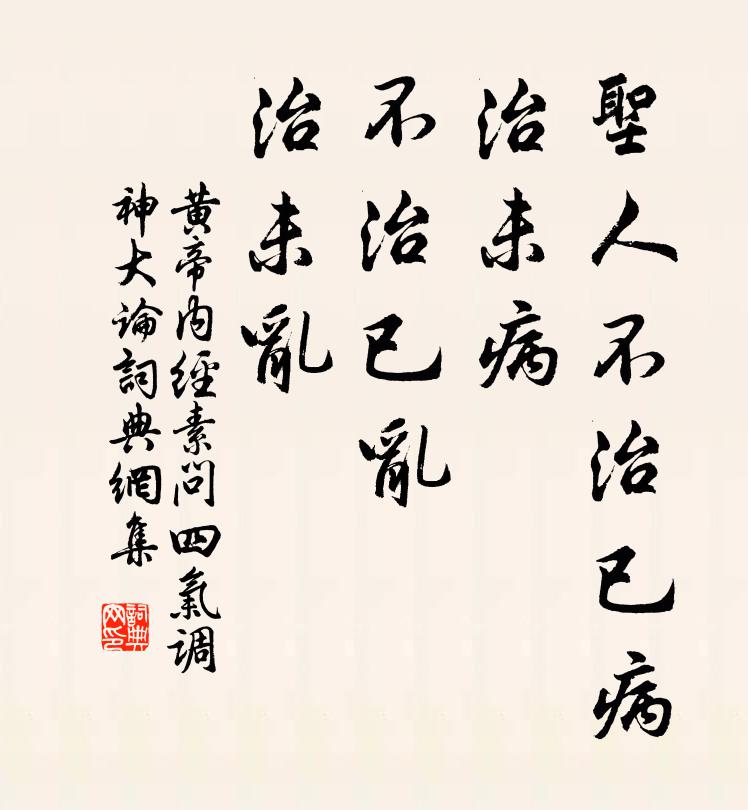 聖人不治已病
治未病
不治已亂
治未亂
黄帝内經素問四氣調
神大論詞典網集
詞典
网印